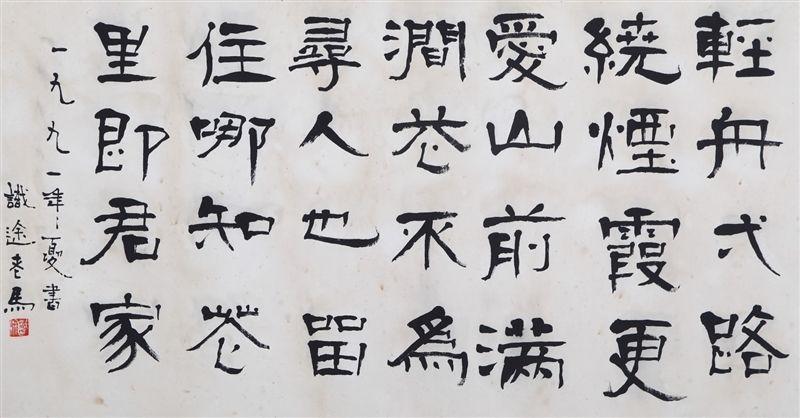 輕舟弌路
繞煙霞更
愛山前满
澗花不爲
尋人也留
住哪知花
里即君家
一九九一年之夏書
識途老馬